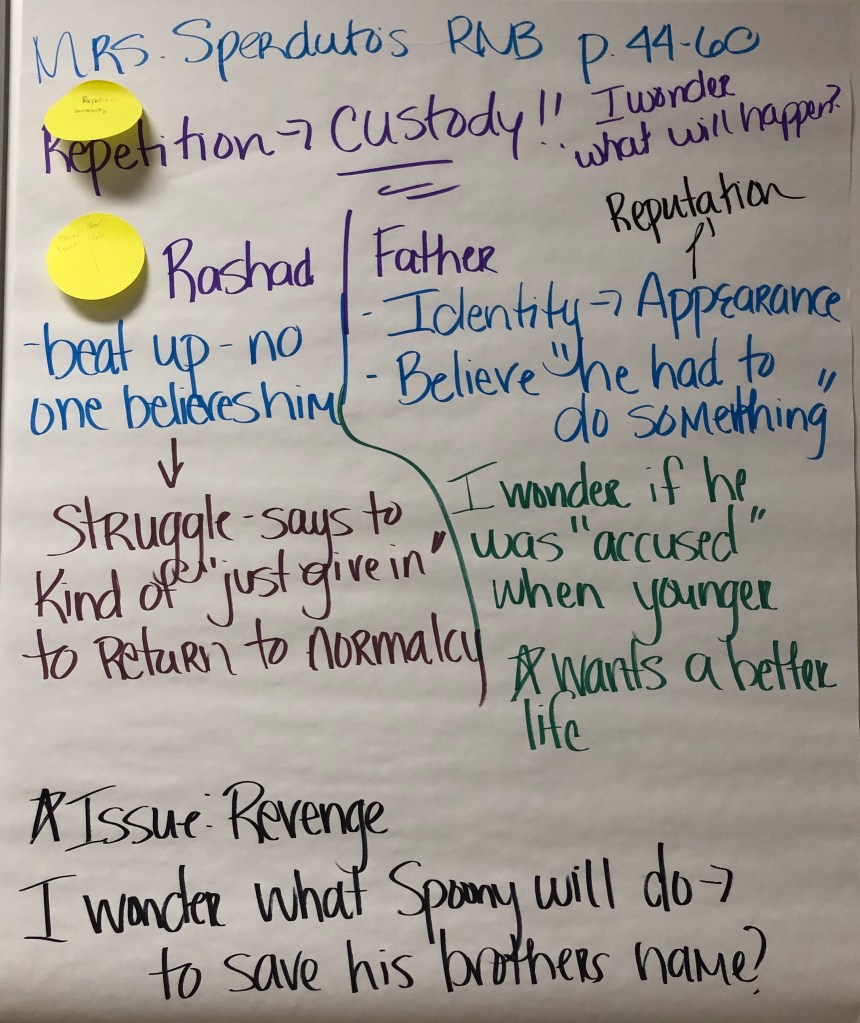 MRS. Sperduto's RNB p. 44-60
Repetition → Custody!! I wonder
what will happen?
Reputation
Rashad
-beat up - no
one believes him
↓
Struggle - says to
Kind of "just give in"
to Return to normalcy
Father
- Identity → Appearance
- Believe "he had to
do something"
I wonder if he
was "accused"
when younger
☆ wants a better
life
☆ Issue: Revenge
I wonder what Spoony will do →
to save his brothers name?